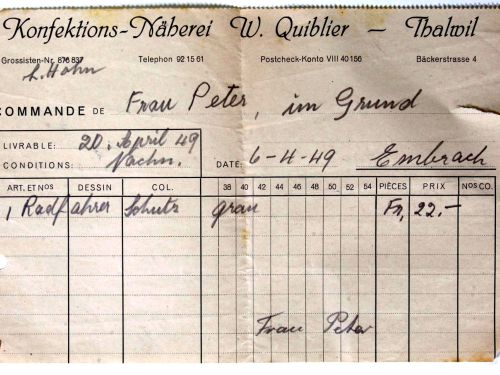 Konfektions-Näherei W. Quiblier – Thalwil
Grossisten-Nr. 876 837 Telephon 92 15 61 Postcheck-Konto VIII 40156 Bäckerstrasse 4
L. Hohn
COMMANDE DE Frau Peter, im Grund
LIVRABLE: 20. April 49
CONDITIONS: Nachn. DATE: 6-4-49 Embrach
ART. ET NOS DESSIN COL. 38 40 42 44 46 48 50 52 54 PIÈCES PRIX NOS CO.
1 Radfahrer Schutz grau Fr. 22.–
Frau Peter